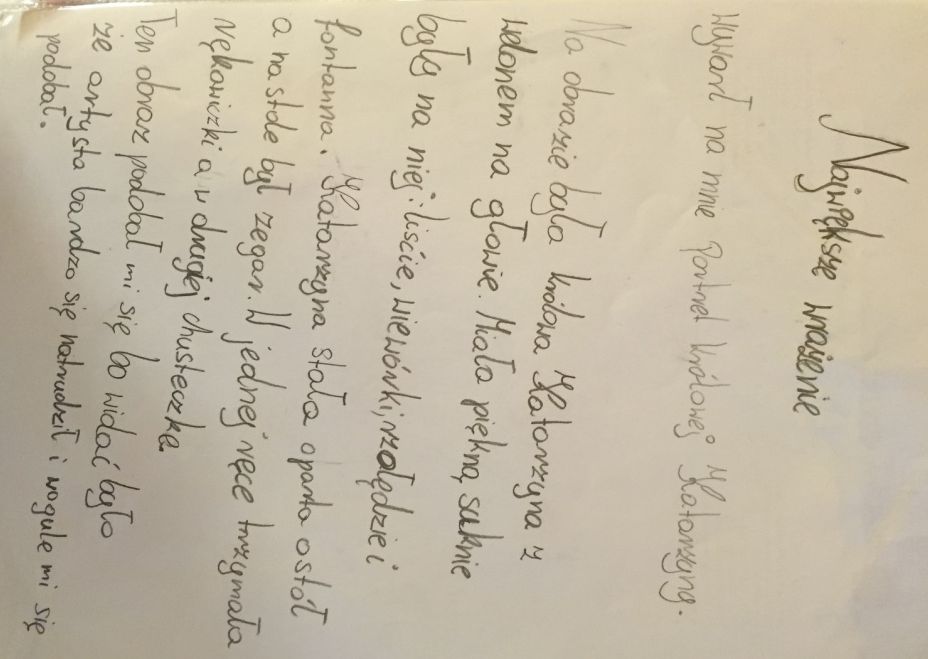 Największe wrażenie
wywarł na mnie Portret królowej Katarzyny.
Na obrazie była królowa Katarzyna z
welonem na głowie. Miała piękną suknie
były na niej: liście, wiewiórki, rzołędzie i
fontanna. Katarzyna stała oparta o stół
a na stole był zegar. W jednej ręce trzymała
rękawiczki a w drugiej chusteczkę.
Ten obraz podobał mi się bo widać było
że artysta bardzo się natrudził i wogule mi się
podobał.